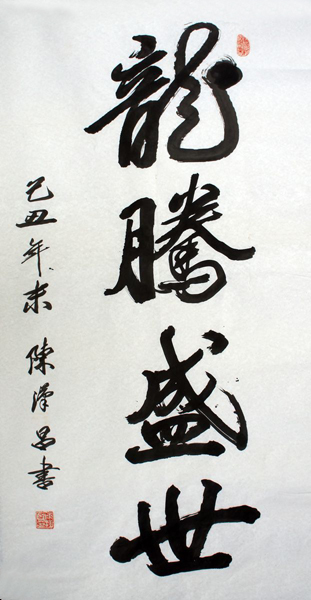 龍騰盛世
己丑年末 陳澤昌書